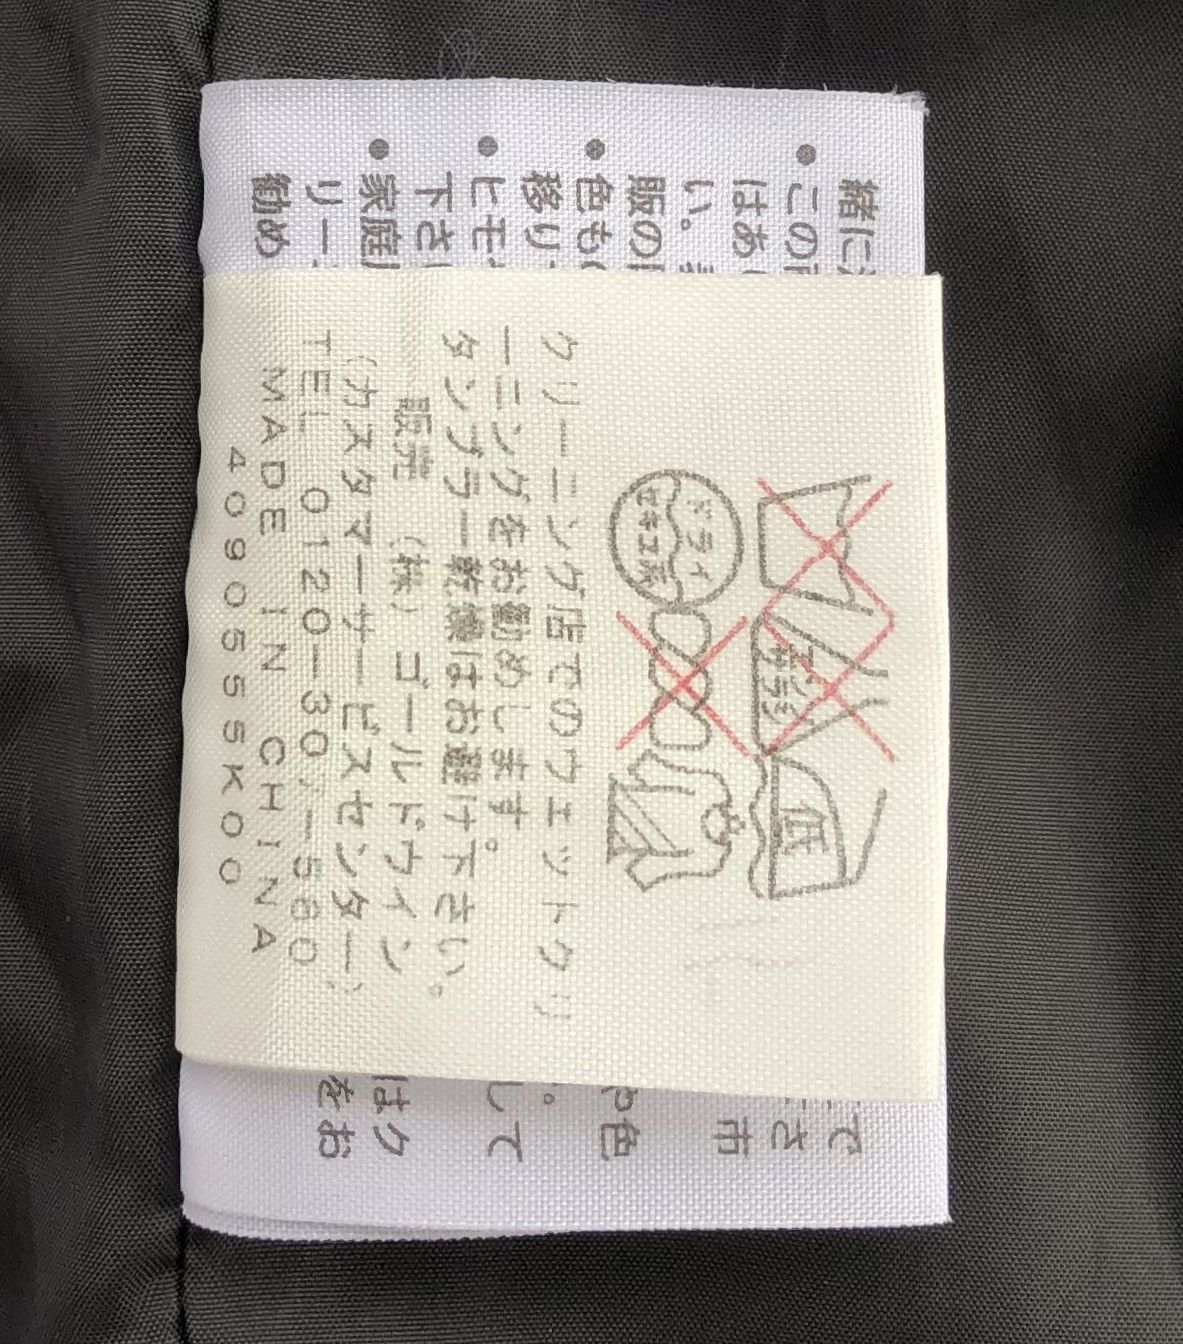 エンソ
サラシ
低
ドライ
セキユ系
クリーニング店でのウェットクリ
ーニングをお勧めします。
タンブラー乾燥はお避け下さい。
販売 (株)ゴールドウイン
(カスタマーサービスセンター)
TEL 0120-307-560
MADE IN CHINA
4090555K00
緒に
で
この
さ
はあ
市
い。
販の
色も
や色
移り
。
ヒモ
して
下さい
家庭
はク
リー
をお
勧め